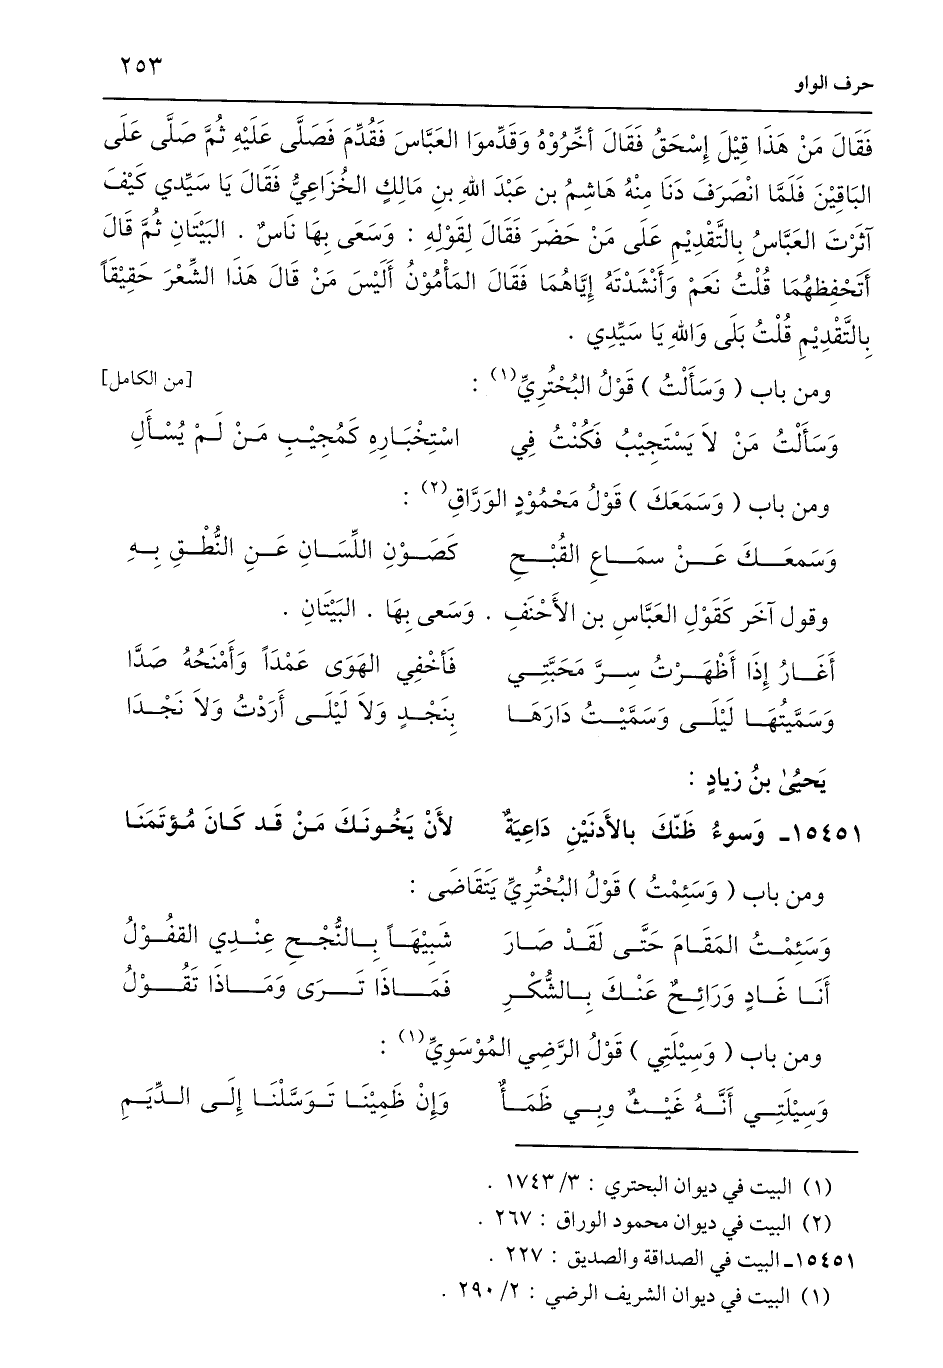 حرف الواو ٢٥٣
فَقَالَ مَنْ هَذَا قِيْلَ إِسْحَقُ فَقَالَ أَخِّرُوْهُ وَقَدِّموا العَبَّاسَ فَقُدِّمَ فَصَلَّى عَلَيْهِ ثُمَّ صَلَّى عَلَى
البَاقِيْنَ فَلَمَّا انْصَرَفَ دَنَا مِنْهُ هَاشِمُ بن عَبْدَ اللهِ بنِ مَالِكٍ الخُزَاعِيُّ فَقَالَ يَا سَيِّدي كَيْفَ
آثَرْتَ العَبَّاسُ بِالتَّقْدِيْمِ عَلَى مَنْ حَضَرَ فَقَالَ لِقَوْلِهِ : وَسَعَى بِهَا نَاسٌ . البَيْتَانِ ثُمَّ قَالَ
أَتَحْفِظهُمَا قُلْتُ نَعَمْ وَأَنْشَدْتَهُ إِيَّاهُمَا فَقَالَ المَأْمُوْنُ أَلَيْسَ مَنْ قَالَ هَذَا الشِّعْرَ حَقِيْقَاً
بِالتَّقْدِيْمِ قُلْتُ بَلَى وَاللهِ يَا سَيِّدِي .
ومن باب ( وَسَأَلْتُ ) قَوْلُ البُحْتُرِيِّ(١) : [من الكامل]
وَسَأَلْتُ مَنْ لاَ يَسْتَجِيْبُ فَكُنْتُ فِي اسْتِخْبَارِهِ كَمُجِيْبِ مَنْ لَمْ يُسْأَلِ
ومن باب ( وَسَمَعَكَ ) قَوْلُ مَحْمُوْدٍ الوَرَّاقِ(٢) :
وَسَمعَكَ عَنْ سمَاعِ القُبْحِ كَصَوْنِ اللِّسَانِ عَنِ النُّطْقِ بِهِ
وقول آخَر كَقَوْلِ العَبَّاسِ بن الأَحْنَفِ . وَسَعى بِهَا . البَيْتَانِ .
أَغَارُ إِذَا أَظْهَرْتُ سِرَّ مَحَبَّتِي فَأَخْفِي الهَوَى عَمْدَاً وَأَمْنَحُهُ صَدَّا
وَسَمَّيْتُهَا لَيْلَى وَسَمَّيْتُ دَارَهَا بِنَجْدٍ وَلاَ لَيْلَى أَرَدْتُ وَلاَ نَجْدَا
يَحيُىٰ بنُ زيادٍ :
١٥٤٥١ـ وَسوءُ ظَنّكَ بالأدنَيْنِ دَاعِيَةٌ لأَنْ يَخُونَكَ مَنْ قَد كَانَ مُؤتَمَنَا
ومن باب ( وَسَئِمْتُ ) قَوْلُ البُحْتُرِيِّ يَتَقَاضَى :
وَسَئِمْتُ المَقَامَ حَتَّى لَقَدْ صَارَ شَبِيْهَاً بِالنُّجْحِ عِنْدِي القفُوْلُ
أَنَا غَادٍ وَرَائِحٌ عَنْكَ بِالشُّكْرِ فَمَاذَا تَرَى وَمَاذَا تَقُوْلُ
ومن باب ( وَسِيْلَتِي ) قَوْلُ الرَّضِي المُوْسَوِيِّ(١) :
وَسِيْلَتِي أَنَّهُ غَيْثٌ وبِي ظَمَأٌ وَإِنْ ظَمِيْنَا تَوَسَّلْنَا إِلَى الدِّيَمِ
(١) البيت في ديوان البحتري : ٣/ ١٧٤٣ .
(٢) البيت في ديوان محمود الوراق : ٢٦٧ .
١٥٤٥١ـ البيت في الصداقة والصديق : ٢٢٧ .
(١) البيت في ديوان الشريف الرضي : ٢/ ٢٩٠ .